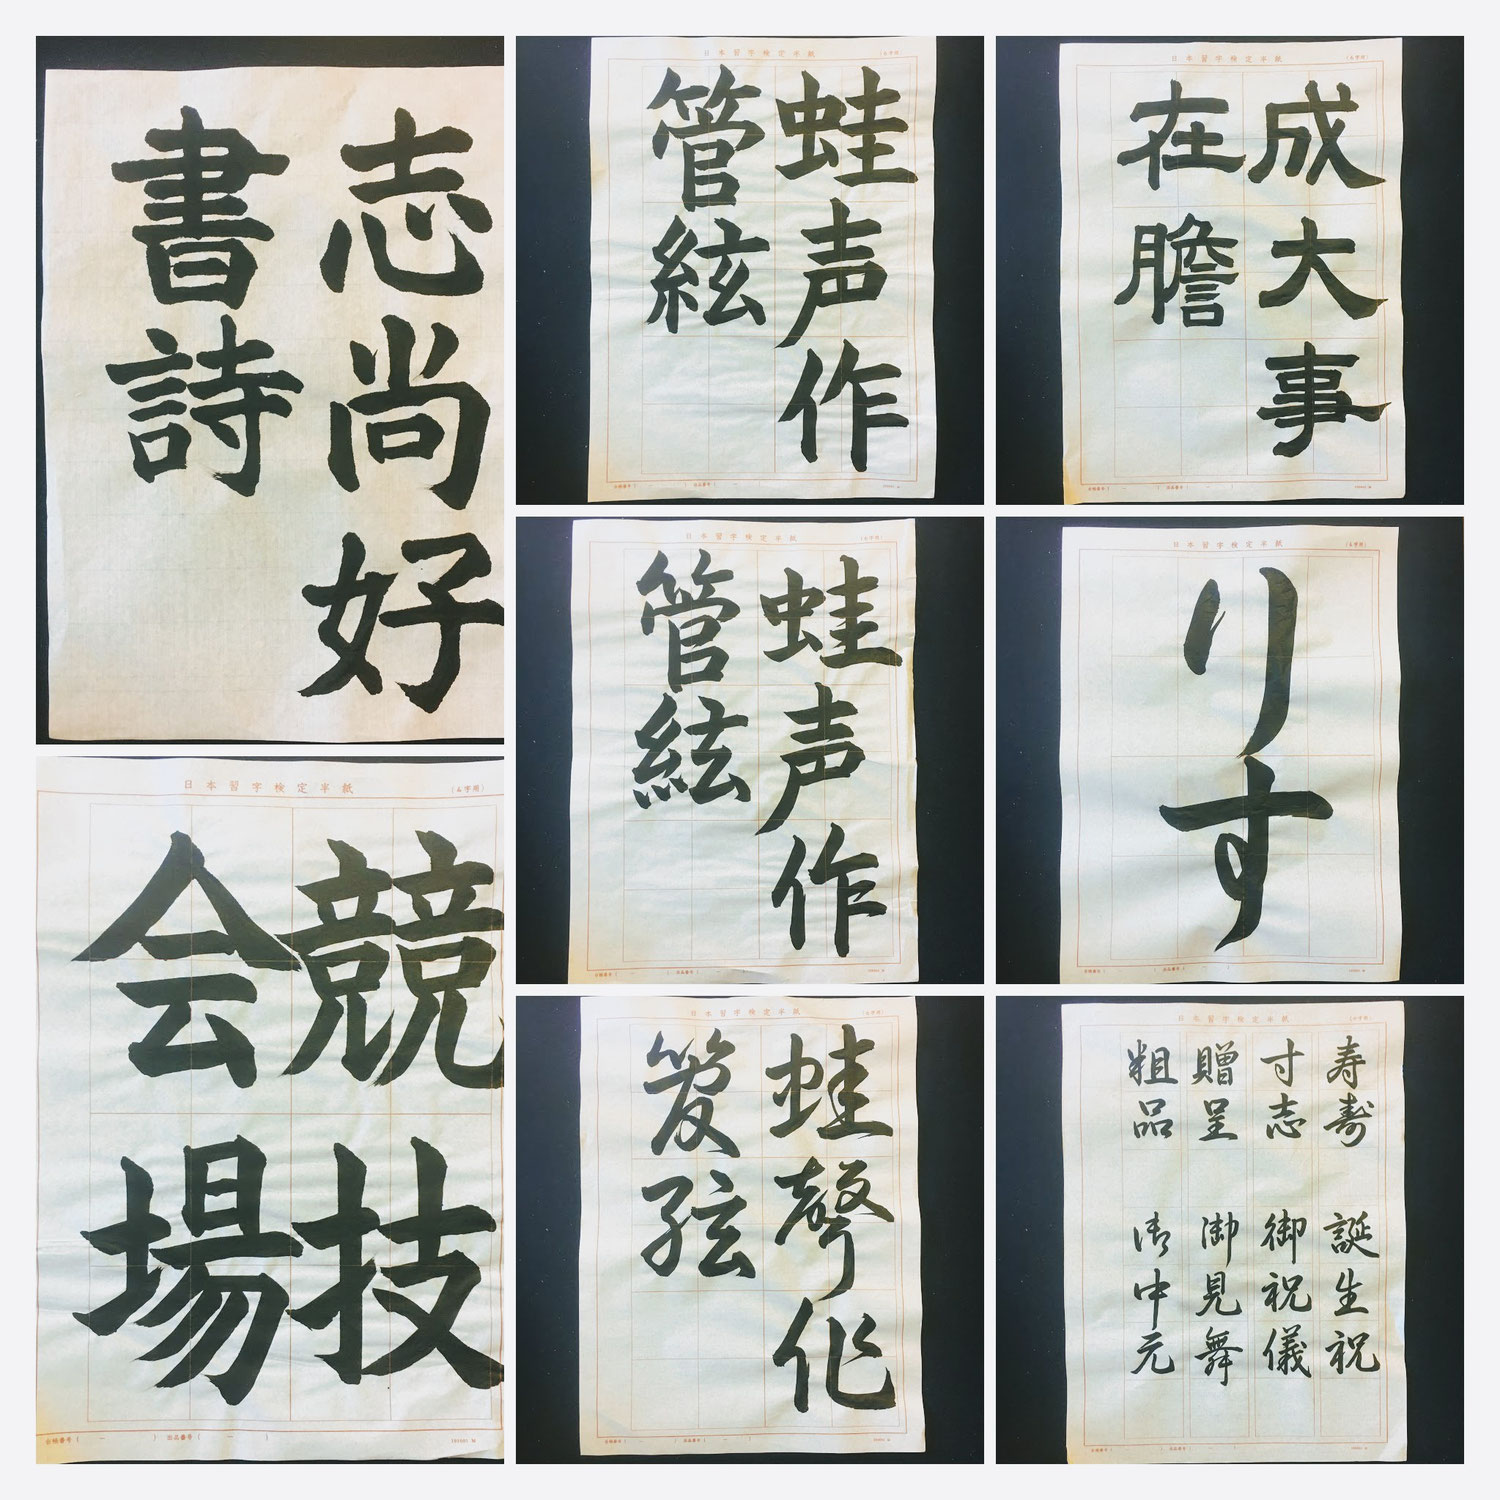 志尚好
書詩
日本習字検定半紙
(6字用)
競技
会場
日本習字検定半紙
(6字用)
蛙声作
管絃
日本習字検定半紙
(6字用)
蛙声作
管絃
日本習字検定半紙
蛙聲作
管弦
日本習字検定半紙
(6字用)
成大事
在膽
日本習字検定半紙
(6字用)
りす
日本習字検定半紙
寿寿 誕生祝
寸志 御祝儀
贈呈 御見舞
粗品 御中元